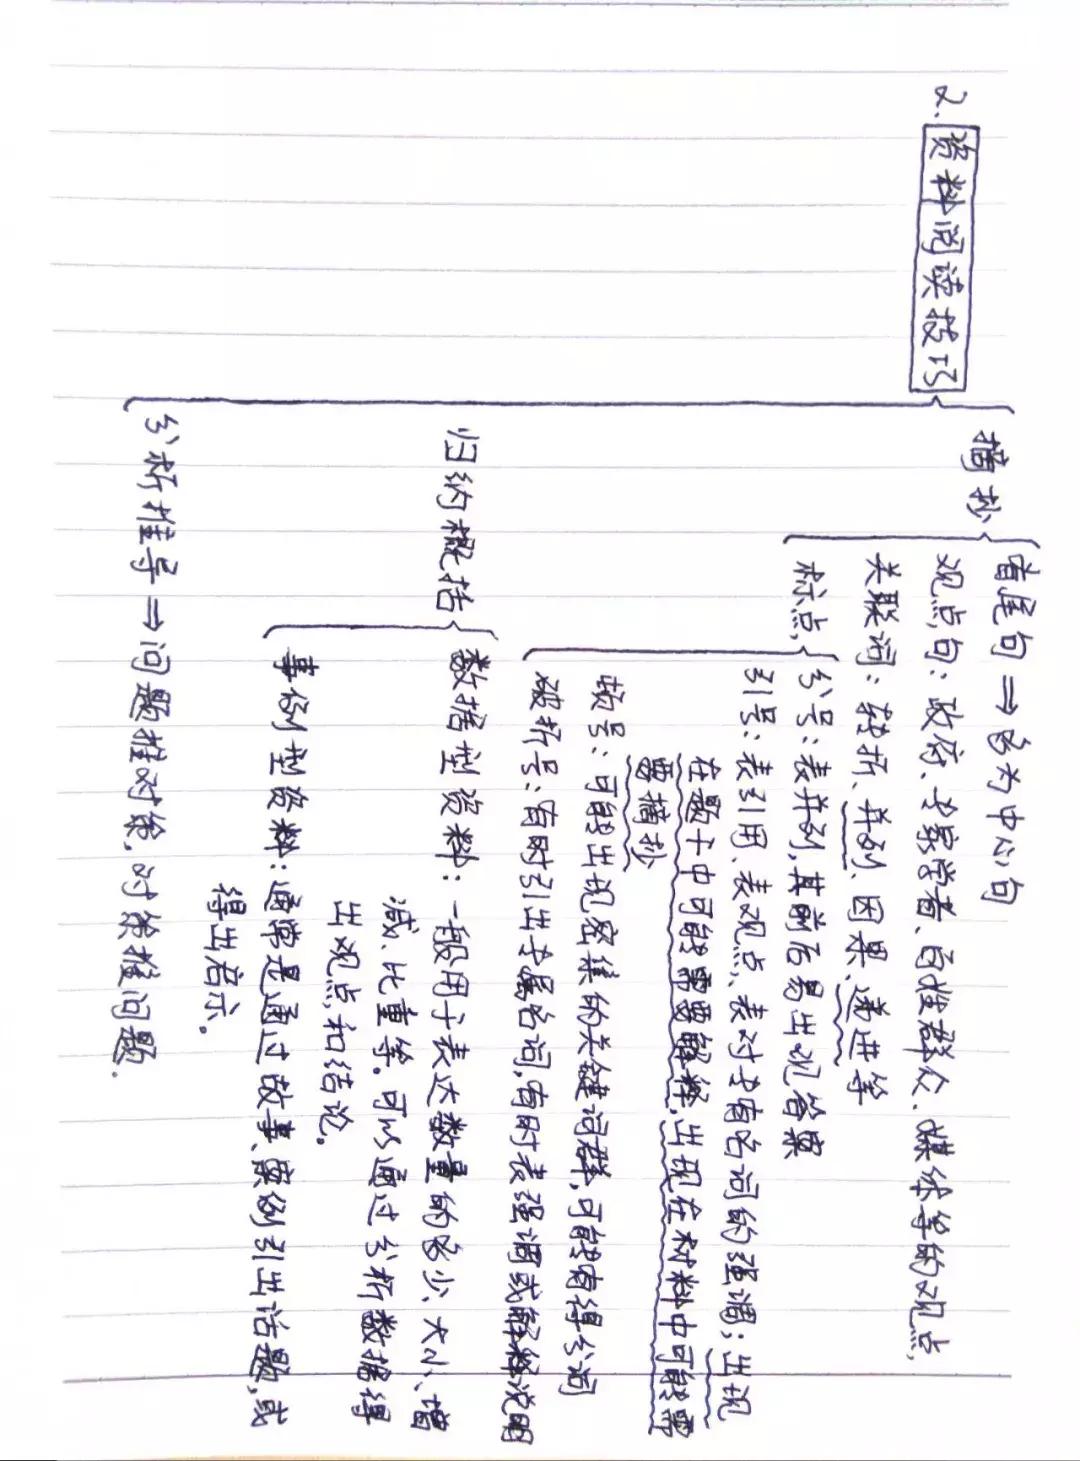 2. 资料阅读技巧
摘抄
首尾句⇒多为中心句
观点句：政府、专家学者、百姓群众、媒体等的观点
关联词：转折、并列、因果、递进等
标点
分号：表并列，其前后易出现答案
引号：表引用、表观点、表对专有名词的强调；出现
在题干中可能需要解释，出现在材料中可能需
要摘抄
顿号：可能出现密集的关键词群，可能有得分词
破折号：有时引出专属名词，有时表强调或解释说明
归纳概括
数据型资料：一般用于表达数量的多少、大小、增
减、比重等。可以通过分析数据得
出观点和结论。
事例型资料：通常是通过故事、案例引出话题，或
得出启示。
分析推导⇒问题推对策，对策推问题.